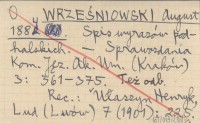 WRZEŚNIOWSKI August
1882 Spis wyrazów pod-
halskich. — Sprawozdania
Kom. Jęz. Ak. Um. (Kraków)
3: 361-375. Też odb.
Rec.: Ułaszyn Henryk,
Lud (Lwów) 7 (1901):